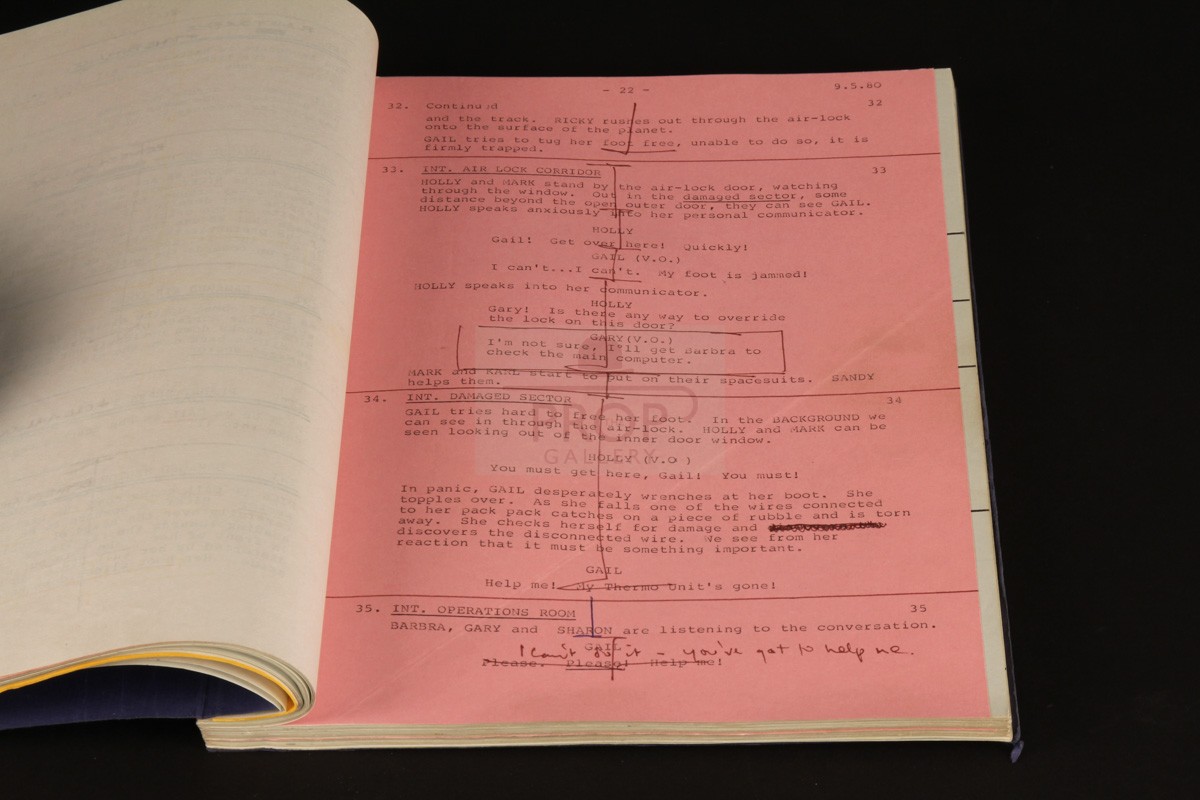 - 22 -
9.5.80
32. Continued 32
and the track. RICKY rushes out through the air-lock
onto the surface of the planet.
GAIL tries to tug her foot free, unable to do so, it is
firmly trapped.
33. INT. AIR LOCK CORRIDOR 33
HOLLY and MARK stand by the air-lock door, watching
through the window. Out in the damaged sector, some
distance beyond the open outer door, they can see GAIL.
HOLLY speaks anxiously into her personal communicator.
HOLLY
Gail! Get over here! Quickly!
GAIL (V.O.)
I can't...I can't. My foot is jammed!
HOLLY speaks into her communicator.
HOLLY
Gary! Is there any way to override
the lock on this door?
GARY(V.O.)
I'm not sure, I'll get Barbra to
check the main computer.
MARK and KARL start to put on their spacesuits. SANDY
helps them.
34. INT. DAMAGED SECTOR 34
GAIL tries hard to free her foot. In the BACKGROUND we
can see in through the air-lock. HOLLY and MARK can be
seen looking out of the inner door window.
PROP
GALLERY
HOLLY (V.O.)
You must get here, Gail! You must!
In panic, GAIL desperately wrenches at her boot. She
topples over. As she falls one of the wires connected
to her pack pack catches on a piece of rubble and is torn
away. She checks herself for damage and
discovers the disconnected wire. We see from her
reaction that it must be something important.
GAIL
Help me! My Thermo Unit's gone!
35. INT. OPERATIONS ROOM 35
BARBRA, GARY and SHARON are listening to the conversation.
GAIL
I can't do it - you've got to help me.
Please. Please! Help me!